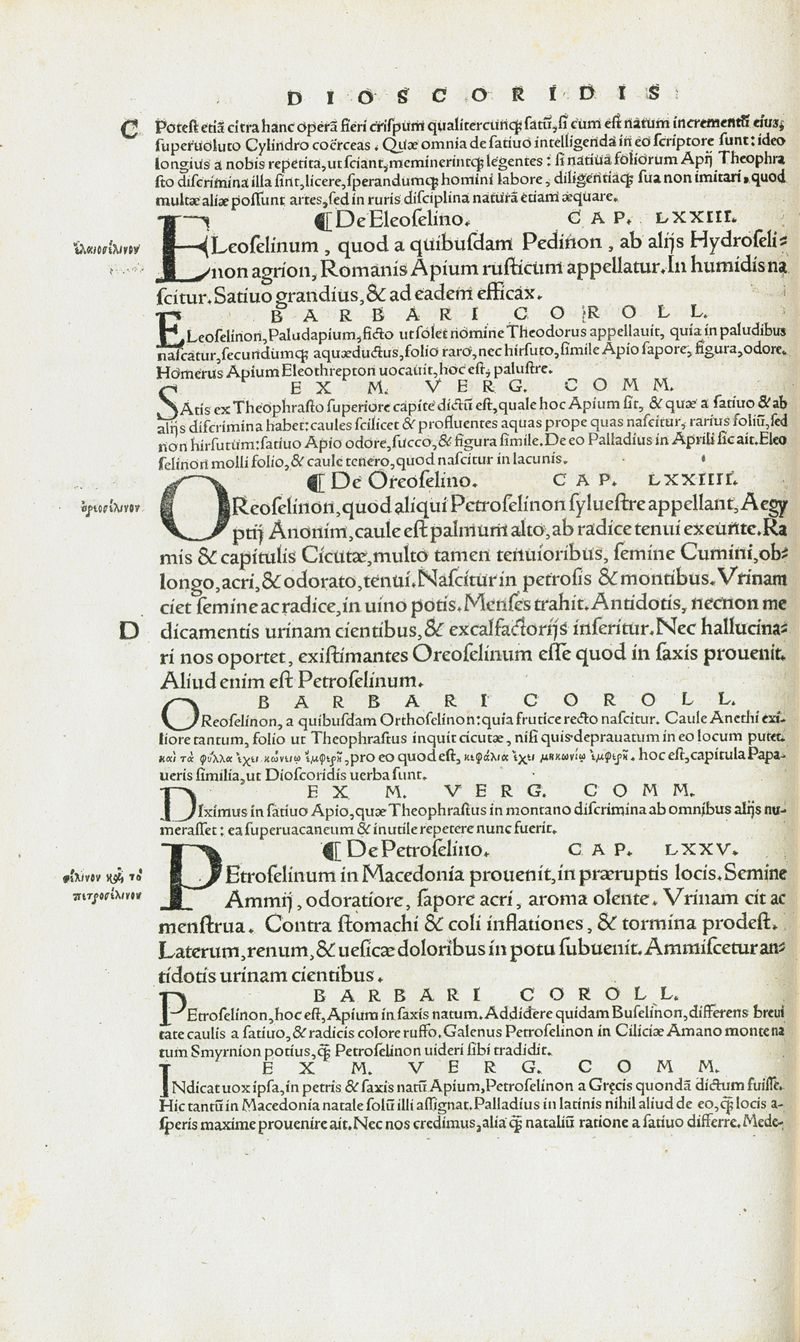 DIOSCORIDIS
C Poteſt etiã citra hanc operã fieri criſpum qualitercunq; ſatũ, ſi cum eſt natum incrementũ eius,
ſuperuoluto Cylindro coërceas. Quæ omnia de ſatiuo intelligenda in eo ſcriptore ſunt: ideo
longius a nobis repetita, ut ſciant, meminerintq; legentes: ſi natiua foliorum Apij Theophra
ſto diſcrimina illa ſint, licere, ſperandumq; homini labore, diligentiaq; ſua non imitari, quod
multæ aliæ poſſunt artes, ſed in ruris diſciplina naturã etiam æquare.
¶ De Eleoſelino. CAP. LXXIII.
ἐλαιοσέλινον
ELeoſelinum, quod a quibuſdam Pedinon, ab alijs Hydroſeli⸗
non agrion, Romanis Apium ruſticum appellatur. In humidis na
ſcitur. Satiuo grandius, & ad eadem efficax.
BARBARI COROLL.
ELeoſelinon, Paludapium, ficto ut ſolet nomine Theodorus appellauit, quia in paludibus
naſcatur, ſecundumq; aquæductus, folio raro, nec hirſuto, ſimile Apio ſapore, figura, odore.
Homerus Apium Eleothrepton uocauit, hoc eſt, paluſtre.
EX M. VERG. COMM.
SAtis ex Theophraſto ſuperiore capite dictũ eſt, quale hoc Apium ſit, & quæ a ſatiuo & ab
alijs diſcrimina habet: caules ſcilicet & profluentes aquas prope quas naſcitur, rarius foliũ, ſed
non hirſutum: ſatiuo Apio odore, ſucco, & figura ſimile. De eo Palladius in Aprili ſic ait. Eleo
ſelinon molli folio, & caule tenero, quod naſcitur in lacunis.
¶ De Oreoſelino. CAP. LXXIIII.
ὀρεοσέλινον
OReoſelinon, quod aliqui Petroſelinon ſylueſtre appellant, Aegy
ptij Anonim, caule eſt palmum alto, ab radice tenui exeunte. Ra
mis & capitulis Cicutæ, multo tamen tenuioribus, ſemine Cumini, ob⸗
longo, acri, & odorato, tenui. Naſcitur in petroſis & montibus. Vrinam
ciet ſemine ac radice, in uino potis. Menſes trahit. Antidotis, necnon me
D dicamentis urinam cientibus, & excalfactorijs inſeritur. Nec hallucina⸗
ri nos oportet, exiſtimantes Oreoſelinum eſſe quod in ſaxis prouenit.
Aliud enim eſt Petroſelinum.
BARBARI COROLL.
OReoſelinon, a quibuſdam Orthoſelinon: quia frutice recto naſcitur. Caule Anethi exi⸗
liore tantum, folio ut Theophraſtus inquit cicutæ, niſi quis deprauatum in eo locum putet.
καὶ τὰ φύλλα ἔχει κώνειῳ ἐμφερῆ, pro eo quod eſt, κεφάλια ἔχει μηκωνίῳ ἐμφερῆ. hoc eſt, capitula Papa⸗
ueris ſimilia, ut Dioſcoridis uerba ſunt.
EX M. VERG. COMM.
DIximus in ſatiuo Apio, quæ Theophraſtus in montano diſcrimina ab omnibus alijs nu⸗
meraſſet: ea ſuperuacaneum & inutile repetere nunc fuerit.
¶ De Petroſelino. CAP. LXXV.
σέλινον καὶ τὸ
πετροσέλινον
PEtroſelinum in Macedonia prouenit, in præruptis locis. Semine
Ammij, odoratiore, ſapore acri, aroma olente. Vrinam cit ac
menſtrua. Contra ſtomachi & coli inflationes, & tormina prodeſt.
Laterum, renum, & ueſicæ doloribus in potu ſubuenit. Ammiſcetur an⸗
tidotis urinam cientibus.
BARBARI COROLL.
PEtroſelinon, hoc eſt, Apium in ſaxis natum. Addidere quidam Buſelinon, differens breui
tate caulis a ſatiuo, & radicis colore ruffo. Galenus Petroſelinon in Ciliciæ Amano monte na
tum Smyrnion potius, q̃ Petroſelinon uideri ſibi tradidit.
EX M. VERG. COMM.
INdicat uox ipſa, in petris & ſaxis natũ Apium, Petroſelinon a Gręcis quondã dictum fuiſſe.
Hic tantũ in Macedonia natale ſolũ illi aſſignat. Palladius in latinis nihil aliud de eo, q̃ locis a⸗
ſperis maxime prouenire ait. Nec nos credimus, alia q̃ nataliũ ratione a ſatiuo differre. Mede⸗